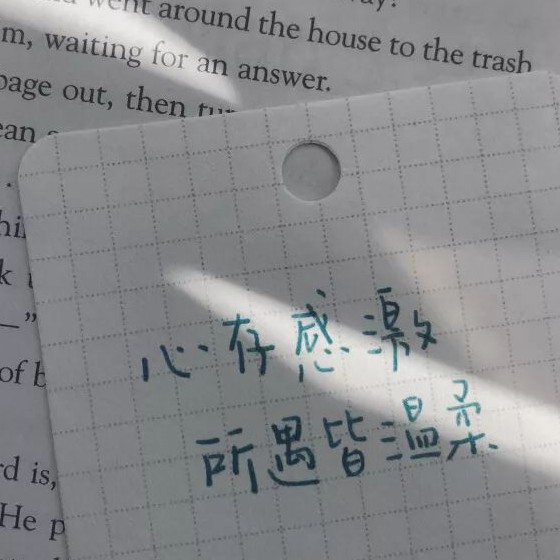 went around the house to the trash
m, waiting for an answer.
page out, then
ean
k
—”
of b
rd is,
He p
心存感激
所遇皆溫柔.